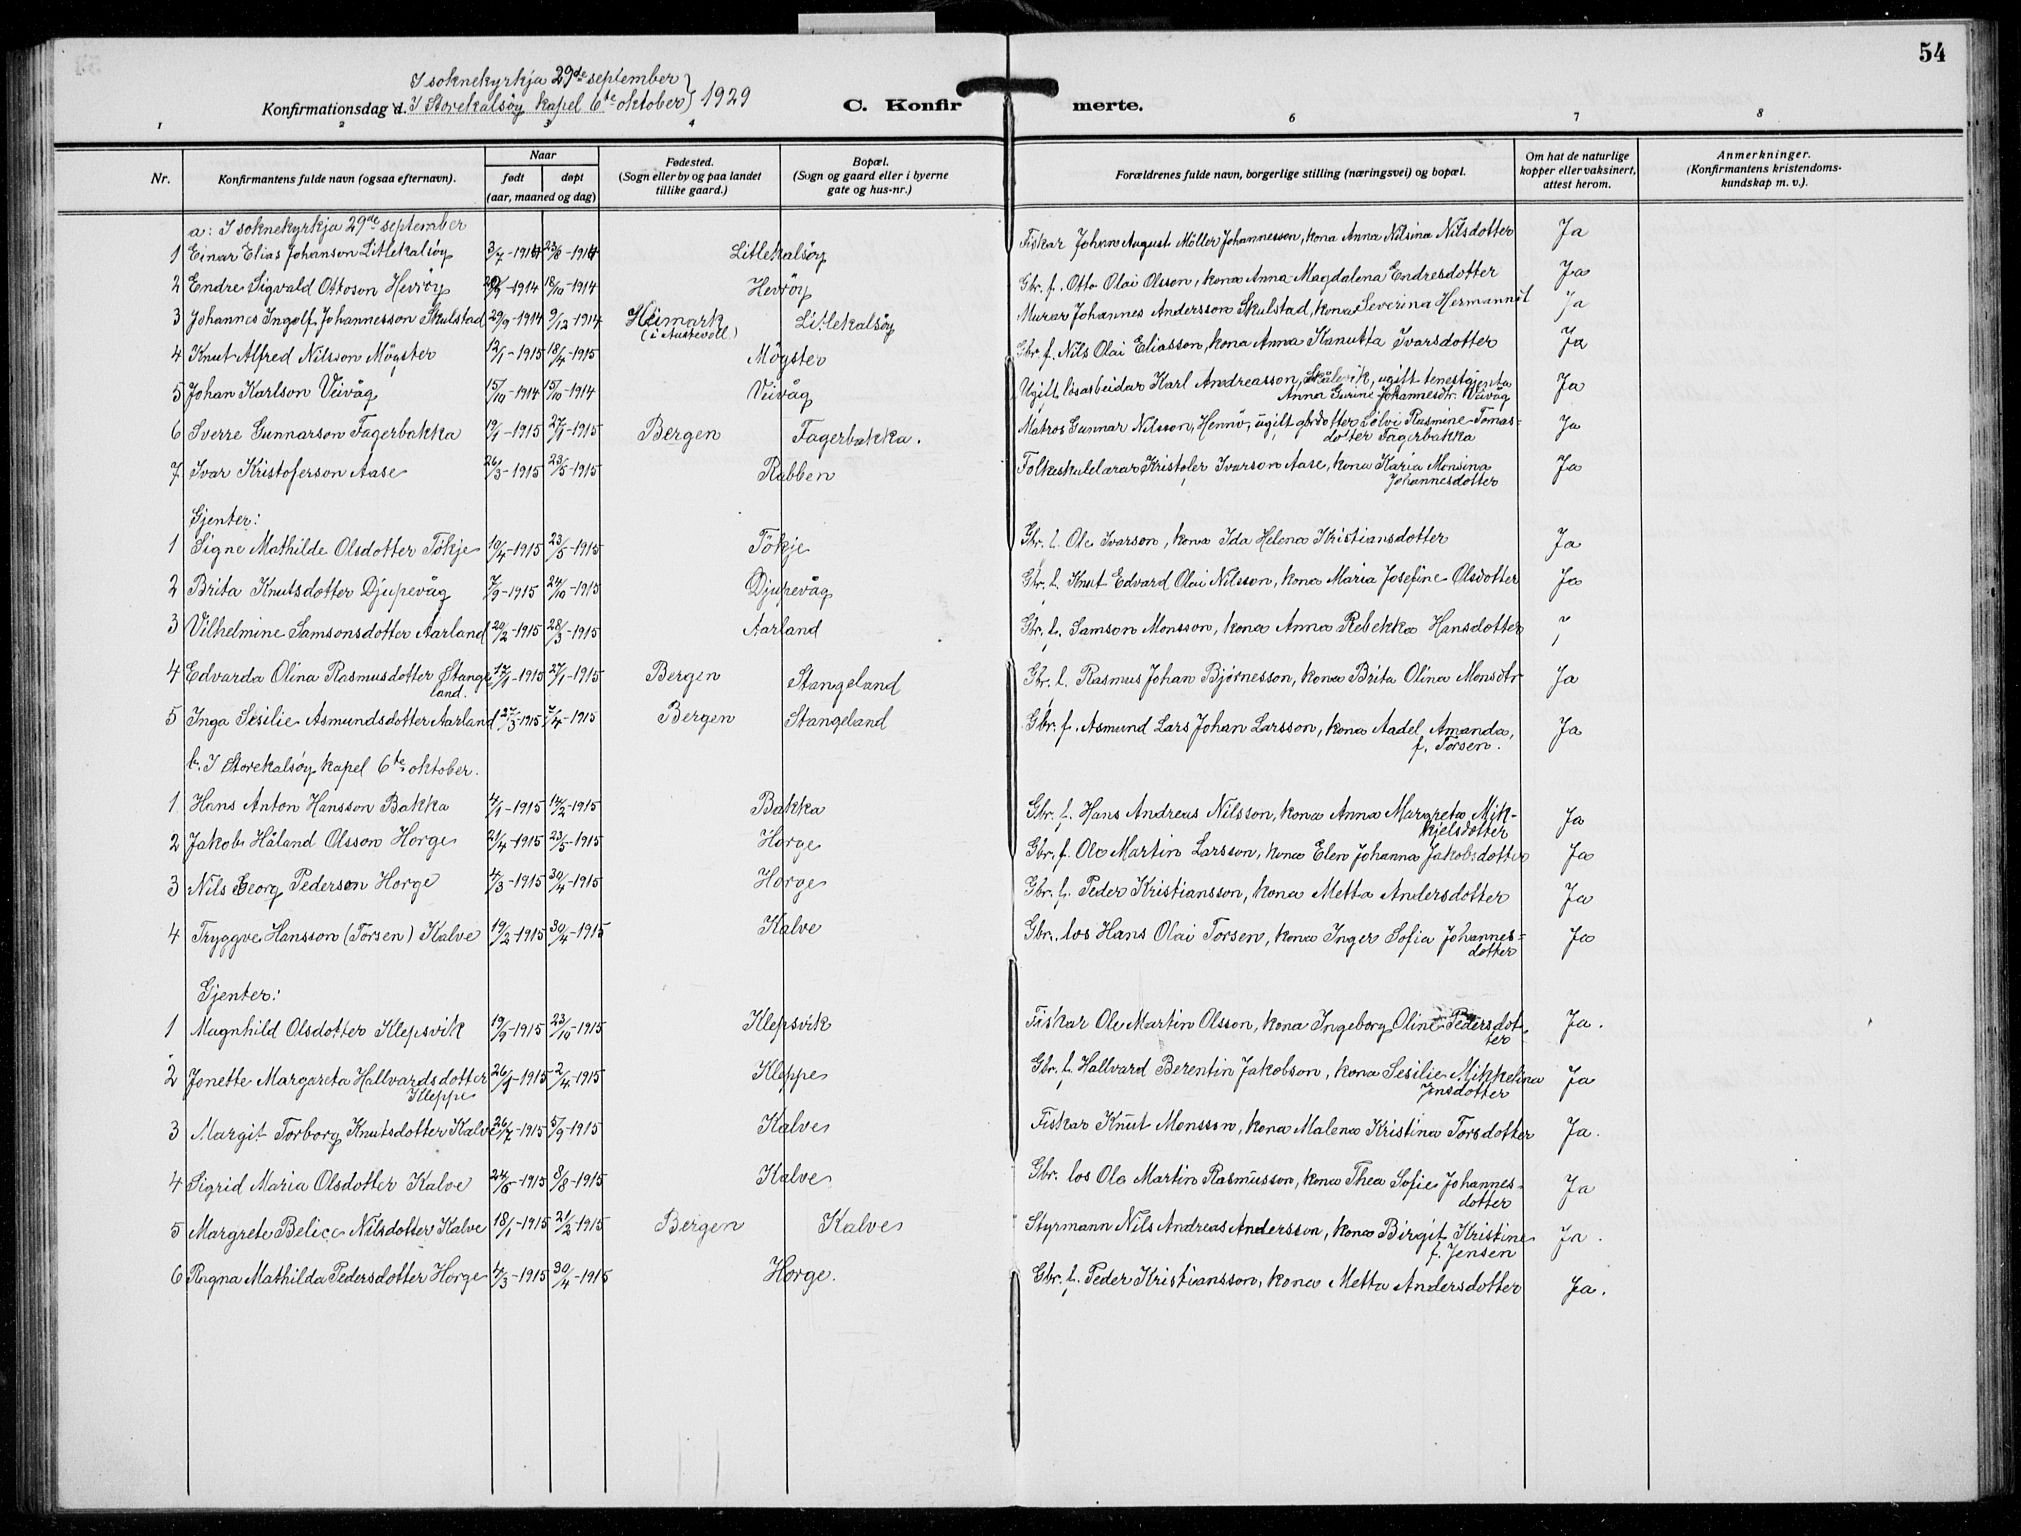 54
I soknekyrkja 29de september
Konfirmationsdag d. I Storekalsøy kapel 6te oktober } 1929
C. Konfir merte.
1 2 3 4 6 7 8
Nr.
Konfirmantens fulde navn (ogsaa efternavn).
Naar
født døpt
(aar, maaned og dag)
Fødested.
(Sogn eller by og paa landet
tillike gaard.)
Bopæl.
(Sogn og gaard eller i byerne
gate og hus-nr.)
Forældrenes fulde navn, borgerlige stilling (næringsvei) og bopæl.
Om hat de naturlige
kopper eller vaksinert,
attest herom.
Anmerkninger.
(Konfirmantens kristendoms-
kundskap m. v.).
a: I soknekyrkja 29de september
1 Einar Elias Johanson Litlekalsøy 3/7-1914 23/8-1914 Litlekalsøy Fiskar Johan August Möller Johannesson, kona Anna Nilsina Nilsdotter Ja
2 Endre Sigvald Ottoson Hevrøy -1914 18/10-1914 Hevrøy Gbr. f. Otto Olai Olsson, kona Anna Magdalena Endresdotter Ja
3 Johannes Ingolf Johannesson Skulstad 29/9-1914 9/12-1914 Heimark Litlekalsøy Murar Johannes Andersson Skulstad, kona Severina Hermannsd. Ja
(i Austevoll)
4 Knut Alfred Nilsson Møgster 12/1-1915 18/4-1915 Møgster Gbr. f. Nils Olai Eliasson, kona Anna Kanutta Ivarsdotter Ja
5 Johan Karlson Veivåg 15/10-1914 15/10-1914 Veivåg Ugift lösarbeidar Karl Andreasson, Skålevik, ugift tenestgjenta Ja
Anna Gurine Johannesdtr. Veivåg
6 Sverre Gunnarson Fagerbakka 19/1-1915 27/1-1915 Bergen Fagerbakka. Matros Gunnar Nilsson, Hennö, ugift gbrdotter Sølvi Rasmine Tomas= Ja
dotter Fagerbakka
7 Ivar Kristoferson Aase 26/3-1915 23/5-1915 Rabben Folkeskulelærar Kristofer Ivarson Aase, kona Karia Monsina Ja
Johannesdotter
Gjenter:
1 Signe Mathilde Olsdotter Tökje 10/4-1915 23/5-1915 Tökje Gbr. f. Ole Ivarson, kona Ida Helena Kristiansdotter Ja
2 Brita Knutsdotter Djupevåg 7/9-1915 24/10-1915 Djupevåg Gbr. f. Knut Edvard Olai Nilsson, kona Maria Josefine Olsdotter Ja
3 Vilhelmine Samsonsdotter Aarland 20/2-1915 28/3-1915 Aarland Gbr. f. Samson Monsson, kona Anna Rebekka Hansdotter ?
4 Edvarda Olina Rasmusdotter Stange 17/1-1915 27/1-1915 Bergen Stangeland Gbr. f. Rasmus Johan Bjørnesson, kona Brita Olina Monsdtr Ja
land.
5 Inga Sesilie Asmundsdotter Aarland 27/3-1915 7/4-1915 Bergen Stangeland Gbr. f. Asmund Lars Johan Larsson, kona Aadel Amanda, Ja
f. Torsen.
b. I Storekalsøy kapel 6te oktober.
1 Hans Anton Hansson Bakka 4/1-1915 14/2-1915 Bakka Gbr. f. Hans Andreas Nilsson, kona Anna Margreta Mik- Ja
kjelsdotter
2 Jakob Håland Olsson Horge 21/4-1915 23/5-1915 Horge Gbr. f. Ole Martin Larsson, kona Elen Johanna Jakobsdotter Ja
3 Nils Georg Pederson Horge 4/3-1915 30/4-1915 Horge Gbr. f. Peder Kristiansson, kona Metta Andersdotter Ja
4 Tryggve Hansson (Torsen) Kalve 19/2-1915 30/4-1915 Kalve Gbr. los Hans Olai Torsen, kona Inger Sofia Johannes= Ja
dotter
Gjenter:
1 Magnhild Olsdotter Klepsvik 19/9-1915 23/10-1915 Klepsvik Fiskar Ole Martin Olsson, kona Ingeborg Oline Pedersdot- Ja.
ter
2 Jonette Margareta Hallvardsdotter -1915 2/4-1915 Kleppe Gbr. f. Hallvard Berentin Jakobson, kona Sesilie Mikkelina Ja
Kleppe Jensdotter
3 Margit Torborg Knutsdotter Kalve 26/7-1915 5/9-1915 Kalve Fiskar Knut Monsson, kona Malena Kristina Torsdotter Ja.
4 Sigrid Maria Olsdotter Kalve 24/6-1915 8/8-1915 Kalve Gbr. los Ole Martin Rasmusson, kona Thea Sofie Johannes- Ja
dotter
5 Margrete Belice Nilsdotter Kalve 18/1-1915 21/2-1915 Bergen Kalve Styrmann Nils Andreas Andersson, kona Birgit Kristine Ja.
f. Jensen
6 Ragna Mathilda Pedersdotter Horge 4/3-1915 30/4-1915 Horge. Gbr. f. Peder Kristiansson, kona Metta Andersdotter Ja.